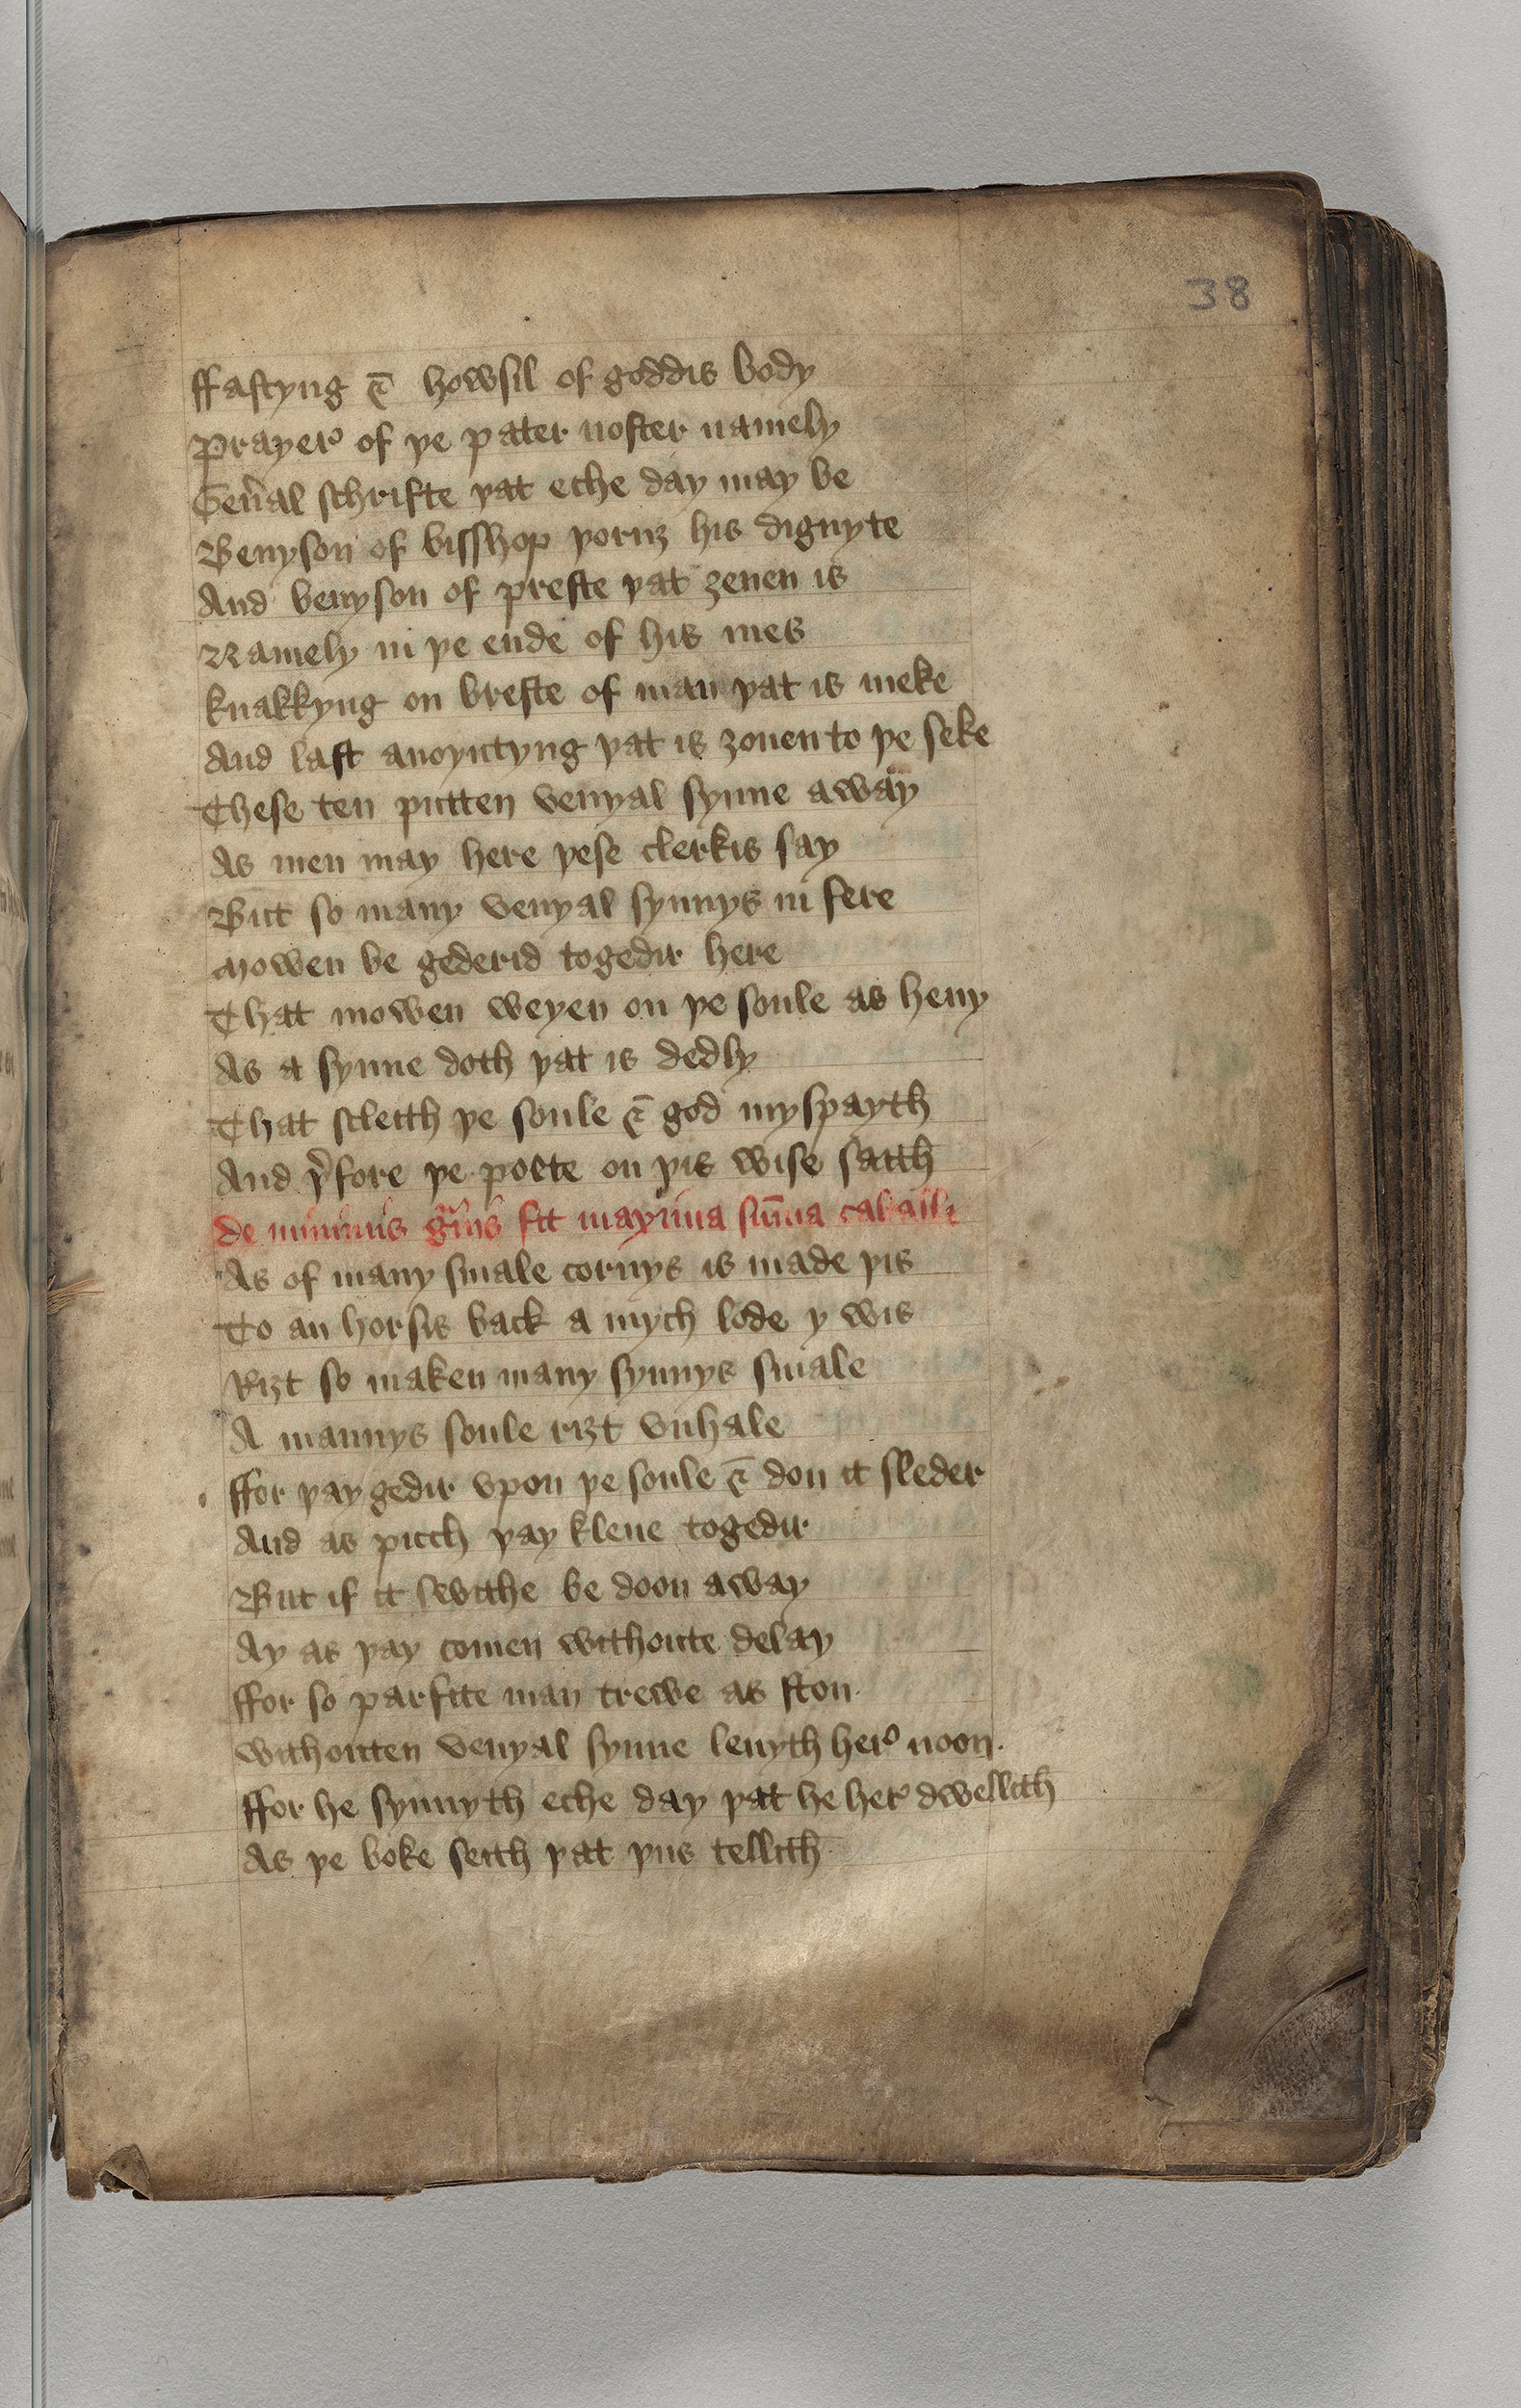 38
ffastyng & howsil of goddis body
Prayer of þe pater noster namely
Gen̉al schrifte þat eche day may be
Benyson of bisshop þoruȝ his dignyte
And benyson of preste þat ȝeuen is
Namely in þe ende of his mes
knakkyng on breste of man þat is meke
And last anoyntyng þat is ȝouen to þe seke
These ten putten venyal synne away
As men may here þese clerkis say
But so many venyal synnys in fere
Mowen be gederid togedir here
That mowen weyen on þe soule as heuy
As a synne doth þat is dedly
That scleith þe soule & god myspayth
And þ̉fore þe poete on þis wise saith
de minimis gͣnis fit maxima sūma caballi
As of many smale cornys is made þis
To an horsis back a mych lode y wis
Riȝt so maken many synnys smale
A mannys soule riȝt vnhale
ffor þay gedir vpon þe soule & don it sleder
And as picch þay kleue togedir
But if it sewithe be doon away
Ay as þay comen withoute delay
ffor so parfite man trewe as ston
withouten venyal synne leuyth her noon.
ffor he synnyth eche day þat he her dwellith
As þe boke seith þat þus tellith